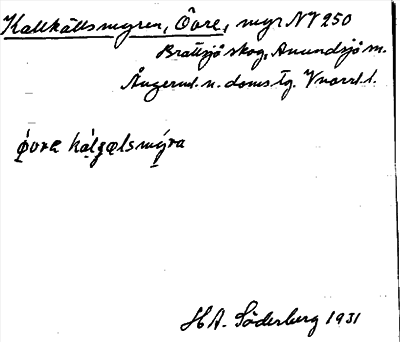 Kallkällsmyren, Övre, myr NV 250
Brattsjö skog, Anundsjö sn.
Ångerml. n. doms. tg. Vnorrl. l.
H.A. Söderberg 1931